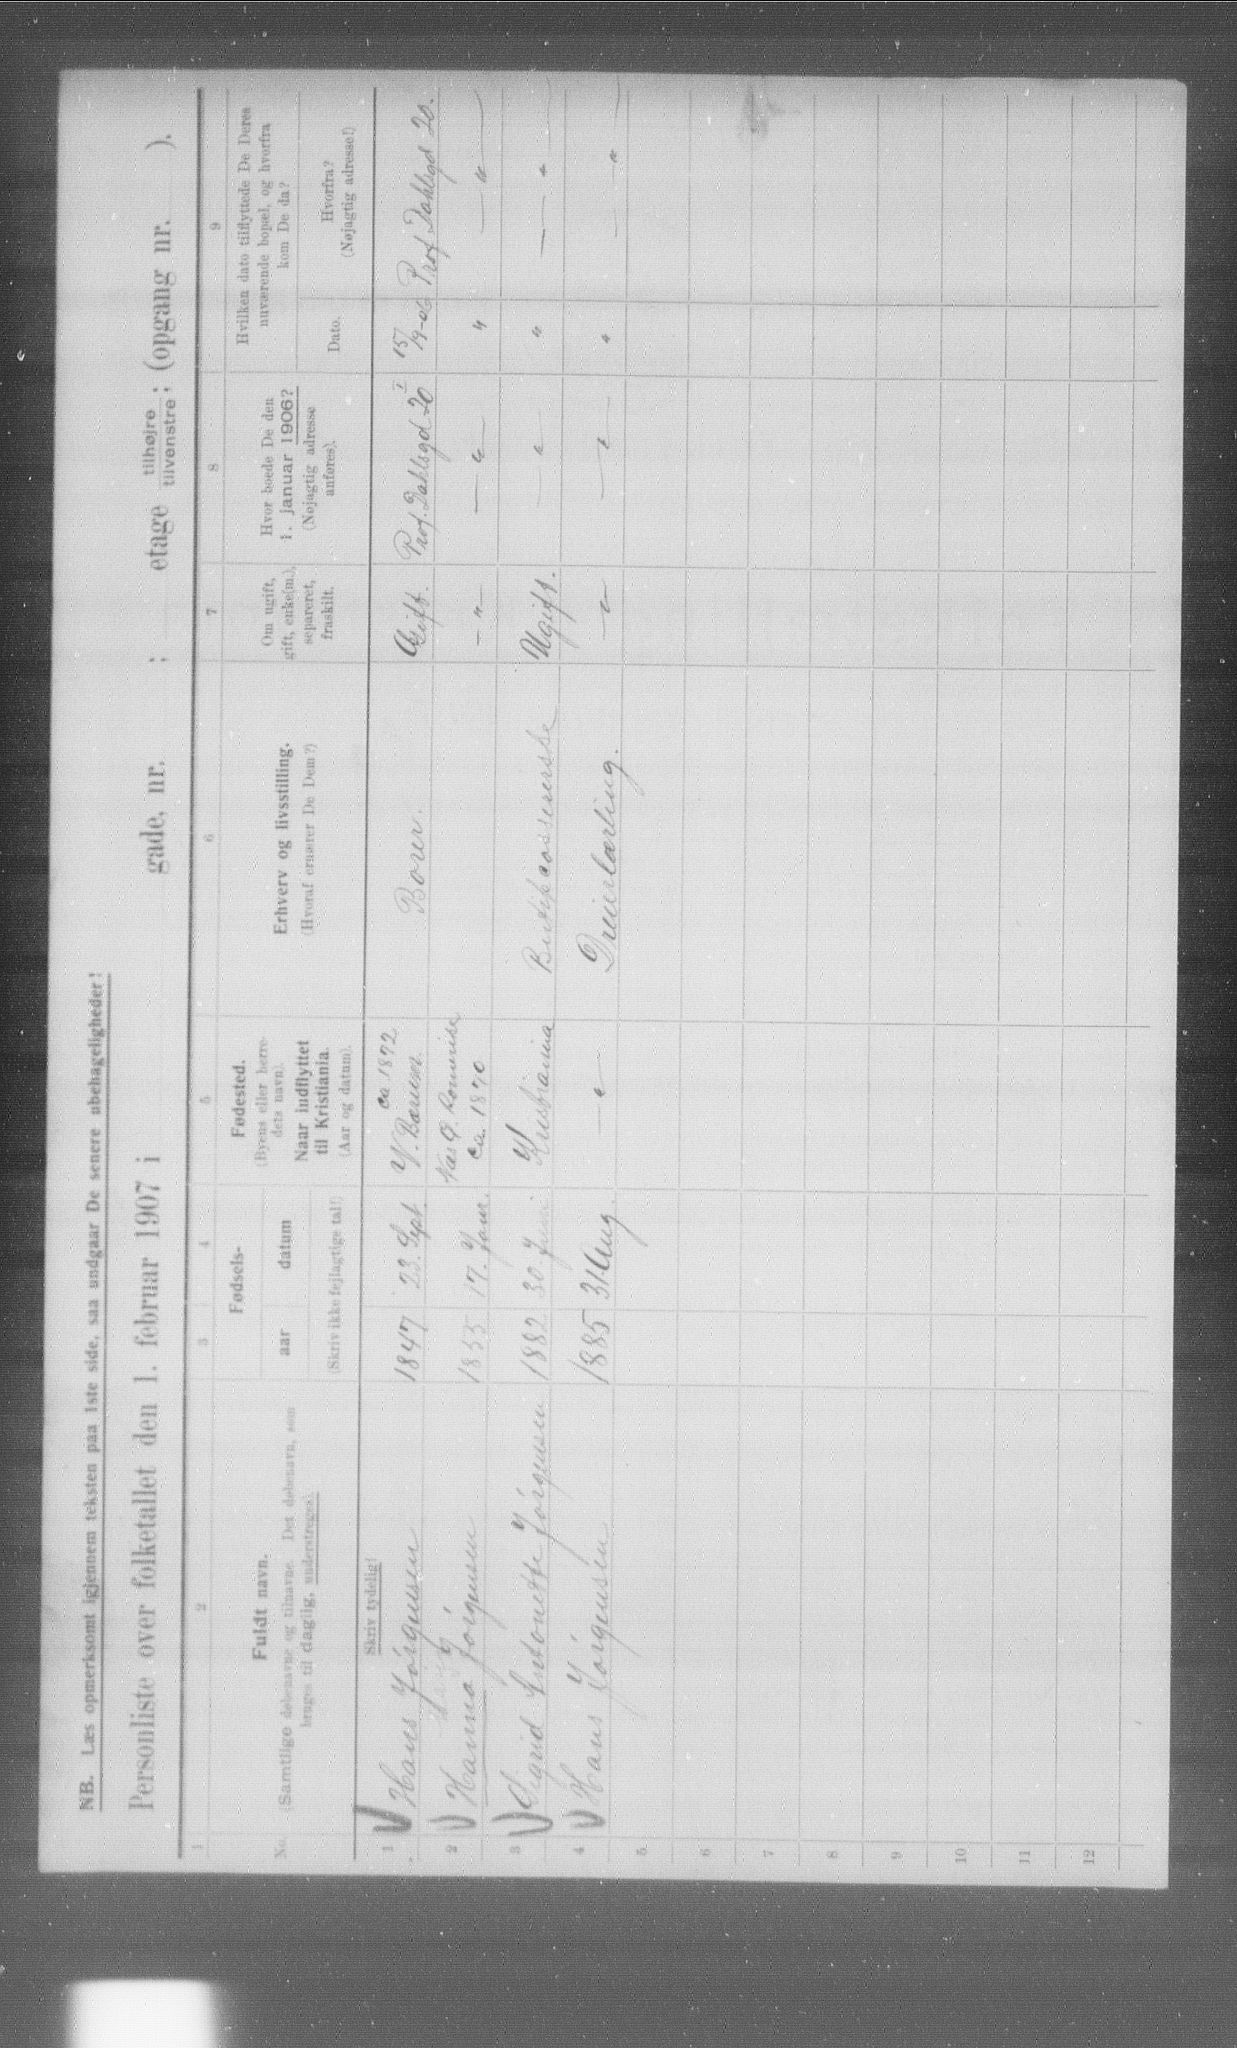 NB. Læs opmerksomt igjennem teksten paa 1ste side, saa undgaar De senere ubehageligheder!
Personliste over folketallet den 1. februar 1907 i gade, nr. ; etage tilhøjre tilvenstre ; (opgang nr. ).
1 2 3 4 5 6 7 8 9
No.
Fuldt navn.
(Samtlige døbenavne og tilnavne. Det døbenavn, som
bruges til daglig, understreges).
Fødsels-
aar datum
(Skriv ikke fejlagtige tal!)
Fødested.
(Byens eller herre-
dets navn).
Naar indflyttet
til Kristiania.
(Aar og datum).
Erhverv og livsstilling.
(Hvoraf ernærer De Dem?)
Om ugift,
gift, enke(m.),
separeret,
fraskilt.
Hvor boede De den
1. januar 1906?
(Nøjagtig adresse
anføres).
Hvilken dato tilflyttede De Deres
nuværende bopæl, og hvorfra
kom De da?
Dato.
Hvorfra?
(Nøjagtig adresse!)
Skriv tydelig!
1 Hans Jørgensen 1847 23. Sept. ca 1872 V. Bærum. Borer. Gift. Prof. Dahlsgd 20 I 15/9-06 Prof. Dahlsgd 20.
2 Hanna Jørgensen 1855 17. Janr. ca. 1870 — " — — " — " — " —
3 Sigrid Antonette Jørgensen 1882 30. Juni. Kristiania Ugift. " " — " —
4 Hans Jørgensen 1885 31 Aug. — " — Dreierlærling. — " — — " — " — " —
5
6
7
8
9
10
11
12